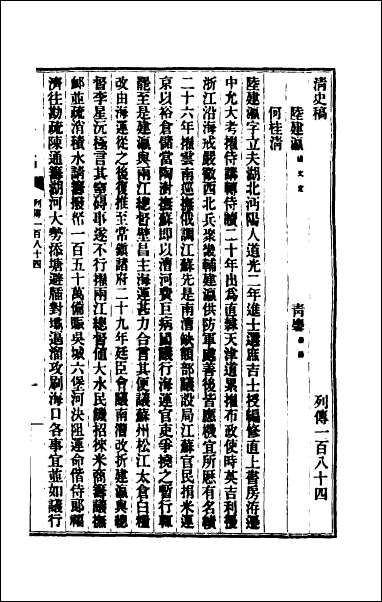 清史稿 列傳一百八十四
陸建瀛 楊文定 青麐 崇綸
何桂清
陸建瀛字立夫湖北沔陽人道光二年進士選庶吉士授編修直上書房洊遷
中允大考擢侍講轉侍讀二十年出爲直隸天津道累擢布政使時英吉利擾
浙江沿海戒嚴徵西北兵衆畿輔建瀛供防軍處善後皆應機宜所歷有名績
二十六年擢雲南巡撫俄調江蘇先是南漕缺額部議設局江蘇官民捐米運
京以裕倉儲當陶澍撫蘇卽以漕河費巨病國議行海運官吏爭撓之暫行輒
罷至是建瀛與兩江總督壁昌主海運甚力合言其便議蘇州松江太倉白糧
改由海運從之後復推至常鎮諸府二十九年廷臣會議南漕改折建瀛與總
督李星沅極言其窒碍事遂不行擢兩江總督値大水民饑招徠米商籌議撫
卹並疏消積水請籌撥帑一百五十萬備賑吳城六堡河決阻運命偕侍郎福
濟往勘疏陳通籌湖河大勢添塘避對壩逼溜攻刷海口各事宜並如議行
列傳一百八十四